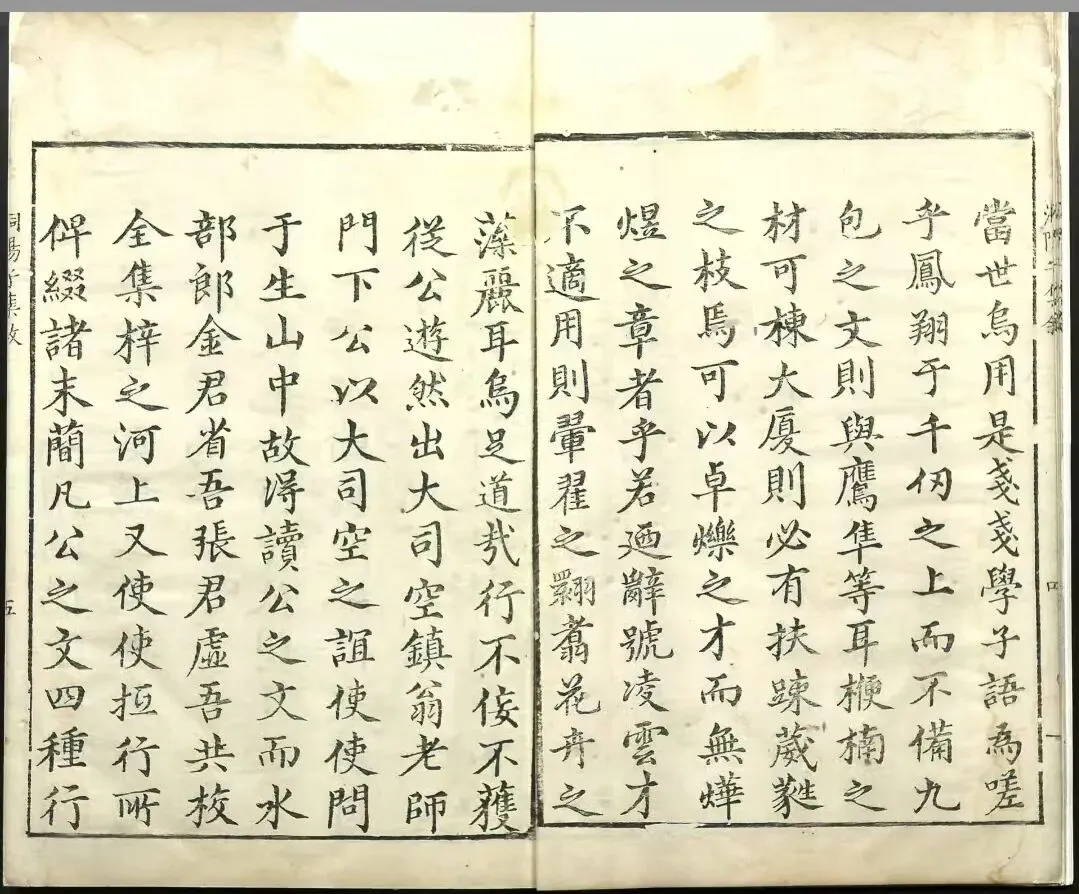 當世烏用是戔戔學子語為嗟
乎鳳翔于千仞之上而不備九
包之文則與鷹隼等耳楩楠之
材可棟大廈則必有扶踈葳蕤
之枝焉可以卓爍之才而無燁
煜之章者乎若廼辭號凌雲才
不適用則翬翟之翾翥花卉之
藻麗耳烏足道哉行不佞不獲
從公遊然出大司空鎮翁老師
門下公以大司空之誼使使問
于生山中故得讀公之文而水
部郎金君省吾張君虛吾共校
全集梓之河上又使使抵行所
俾綴諸末簡凡公之文四種行
五